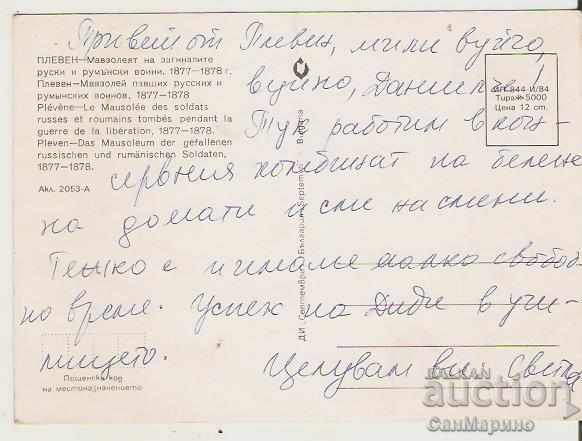 Привет от Плевен, мили вуйчо,
вуйно, Данилче!
Тук работим в кон-
сервния комбинат на белене
на домати и сме на смени.
Тежко е и имаме малко свобод-
но време. Успех на Диди в учи-
лището.
Целувам ви: Светла
ПЛЕВЕН—Мавзолеят на загиналите
руски и румънски воини. 1877—1878 г.
Плевен—Мавзолей павших русских и
румынских воинов. 1877—1878
Plévène—Le Mausolée des soldats
russes et roumains tombés pendant la
guerre de la libération, 1877—1878.
Pleven—Das Mausoleum der gefallenen
russischen und rumänischen Soldaten,
1877—1878.
Акл. 2053-А
ДИ „Септември“ България Septemvri
844-И/84
Тираж 5000
Цена 12 ст.
Пощенски код
на местоназначението
BALKAN
auction
СанМарино